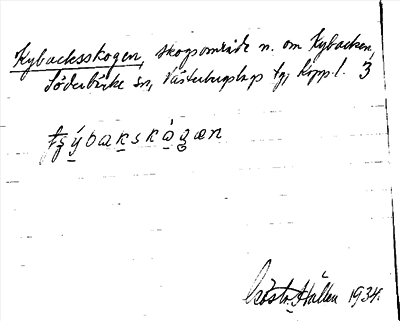 Kybacksskogen, skogsområde n. om Kybacken,
Söderbärke sn, Västerbergslags tg, Kopp. l. 3
bakskågæn
Gösta Hallen 1934.